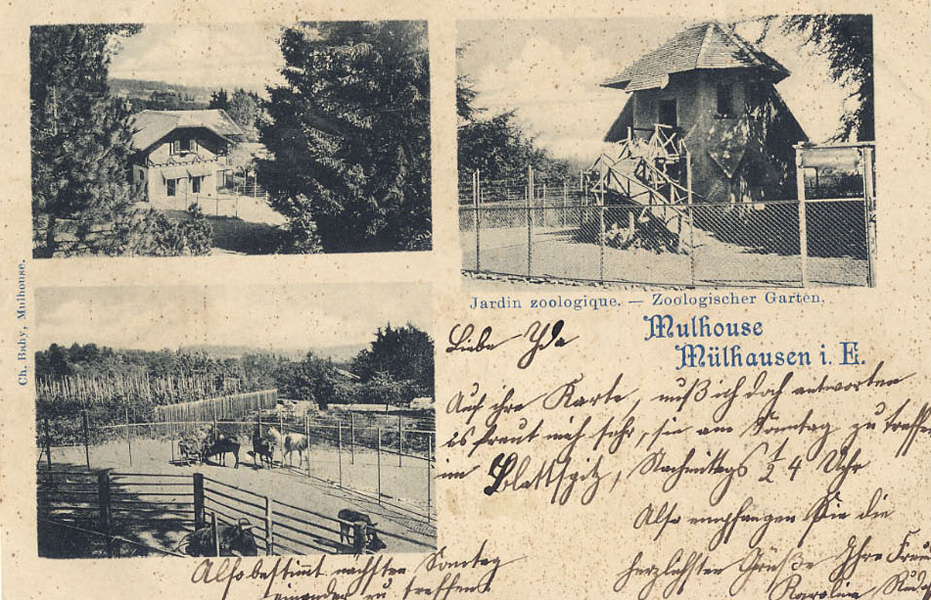 Ch. Bahy, Mulhouse.
Jardin zoologique. — Zoologischer Garten.
Mulhouse
Mülhausen i. E.
Liebe Yda
Auf ihre Karte, muß ich doch antworten
es freut mich sehr, sie am Sonntag zu treffen
im Blattspitz, Nachmittags ½ 4 Uhr
Also empfangen Sie die
herzlichsten Grüße Ihre
Karolina
Also bestimmt nächsten Sonntag
einander zu treffen.